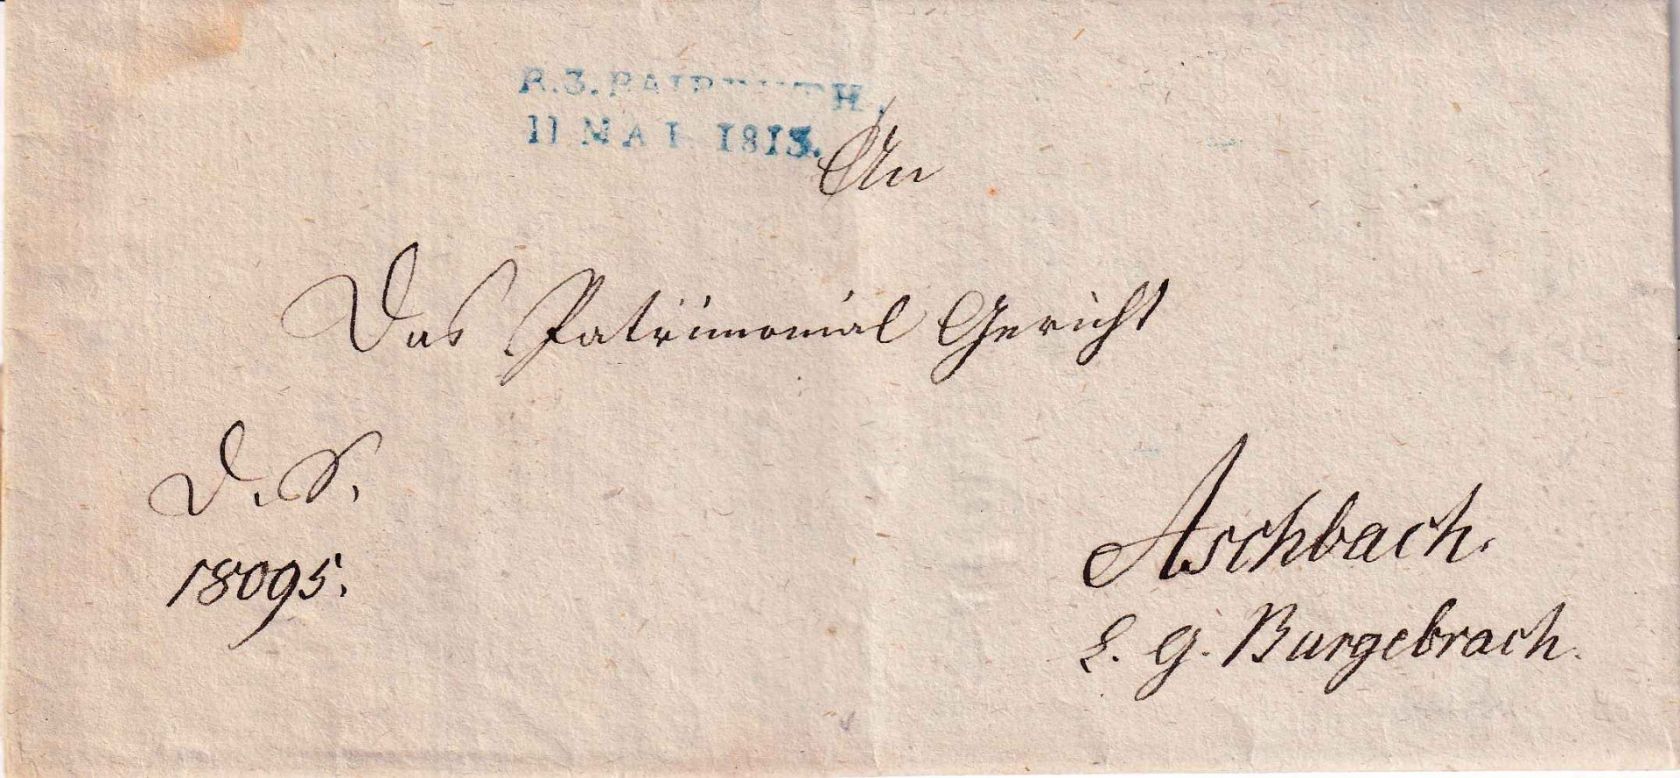 R.3.BAIREUTH.
11 MAI 1813.
An
Das Patrimonial Gericht
D. S.
18095.
Aschbach.
L. G. Burgebrach.